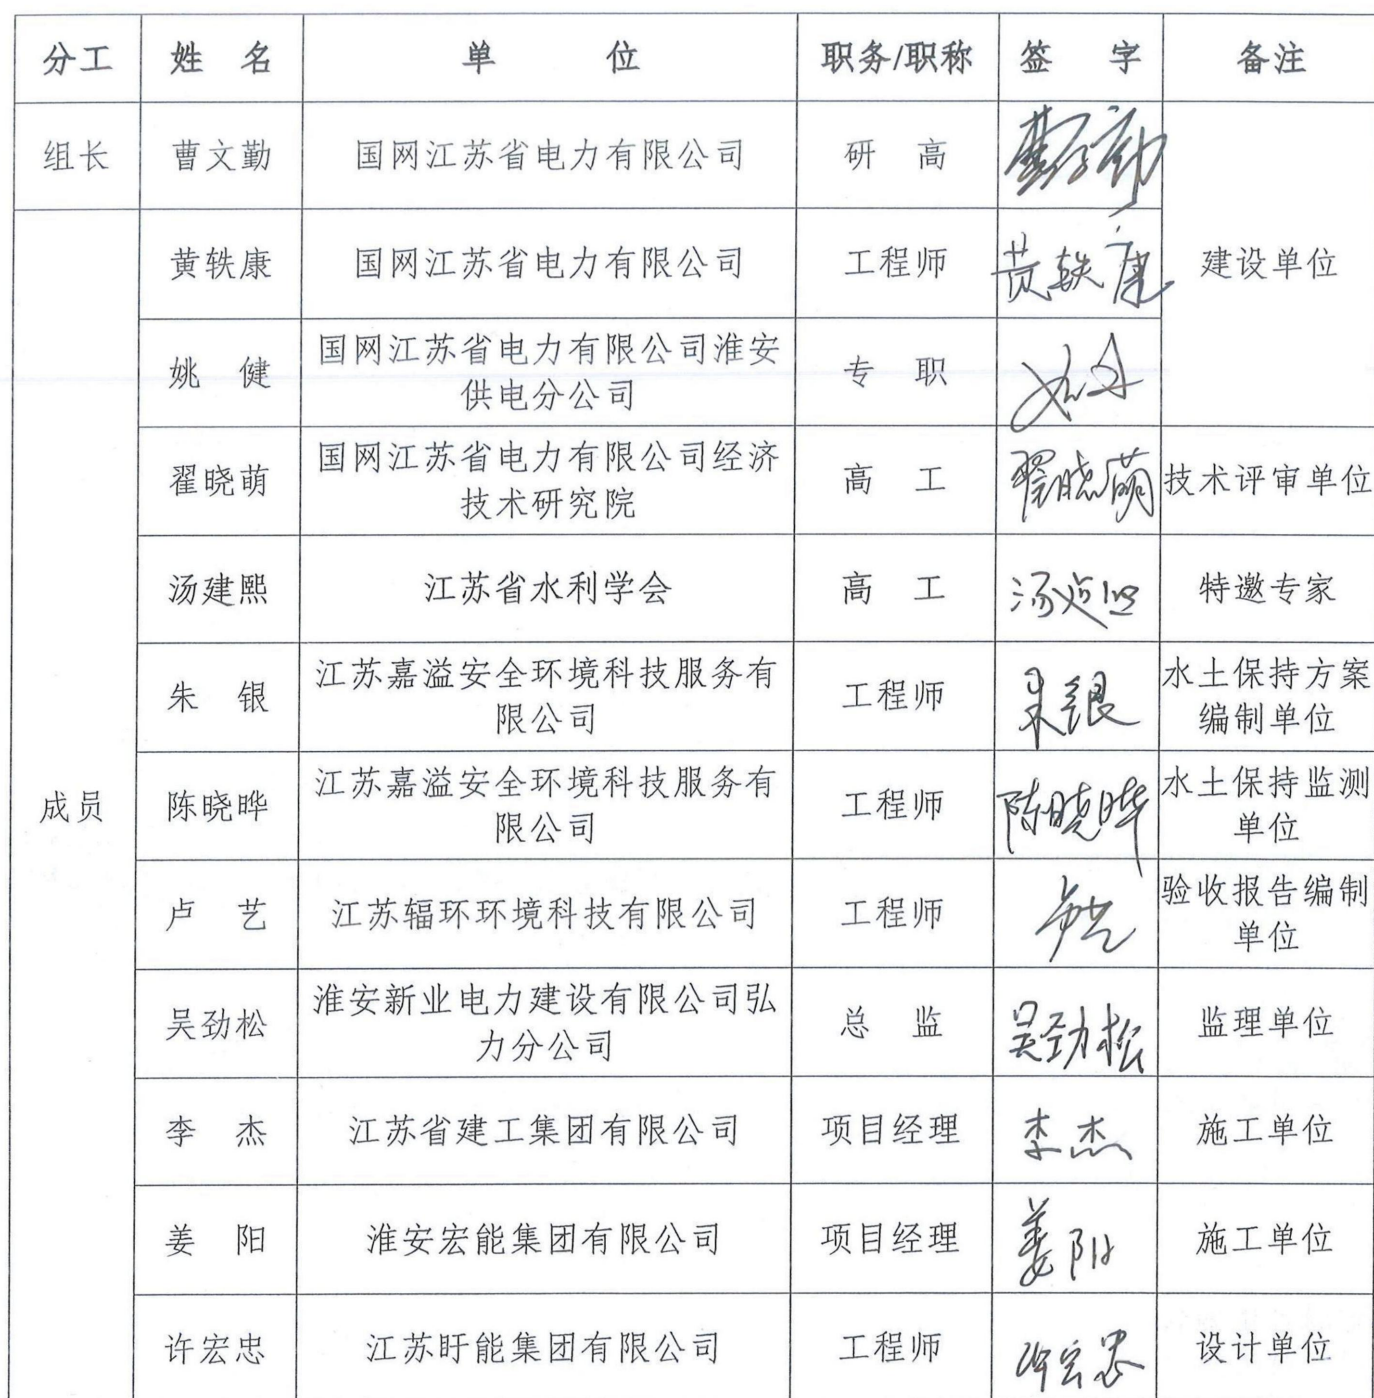 分工 姓 名 单 位 职务/职称 签 字 备注
组长 曹文勤 国网江苏省电力有限公司 研 高 曹文勤
黄轶康 国网江苏省电力有限公司 工程师 黄轶康 建设单位
姚 健 国网江苏省电力有限公司淮安
供电分公司 专 职 姚健
翟晓萌 国网江苏省电力有限公司经济
技术研究院 高 工 翟晓萌 技术评审单位
汤建熙 江苏省水利学会 高 工 汤建熙 特邀专家
朱 银 江苏嘉溢安全环境科技服务有
限公司 工程师 朱银 水土保持方案
编制单位
成员 陈晓晔 江苏嘉溢安全环境科技服务有
限公司 工程师 陈晓晔 水土保持监测
单位
卢 艺 江苏辐环环境科技有限公司 工程师 卢艺 验收报告编制
单位
吴劲松 淮安新业电力建设有限公司弘
力分公司 总 监 吴劲松 监理单位
李 杰 江苏省建工集团有限公司 项目经理 李杰 施工单位
姜 阳 淮安宏能集团有限公司 项目经理 姜阳 施工单位
许宏忠 江苏盱能集团有限公司 工程师 许宏忠 设计单位